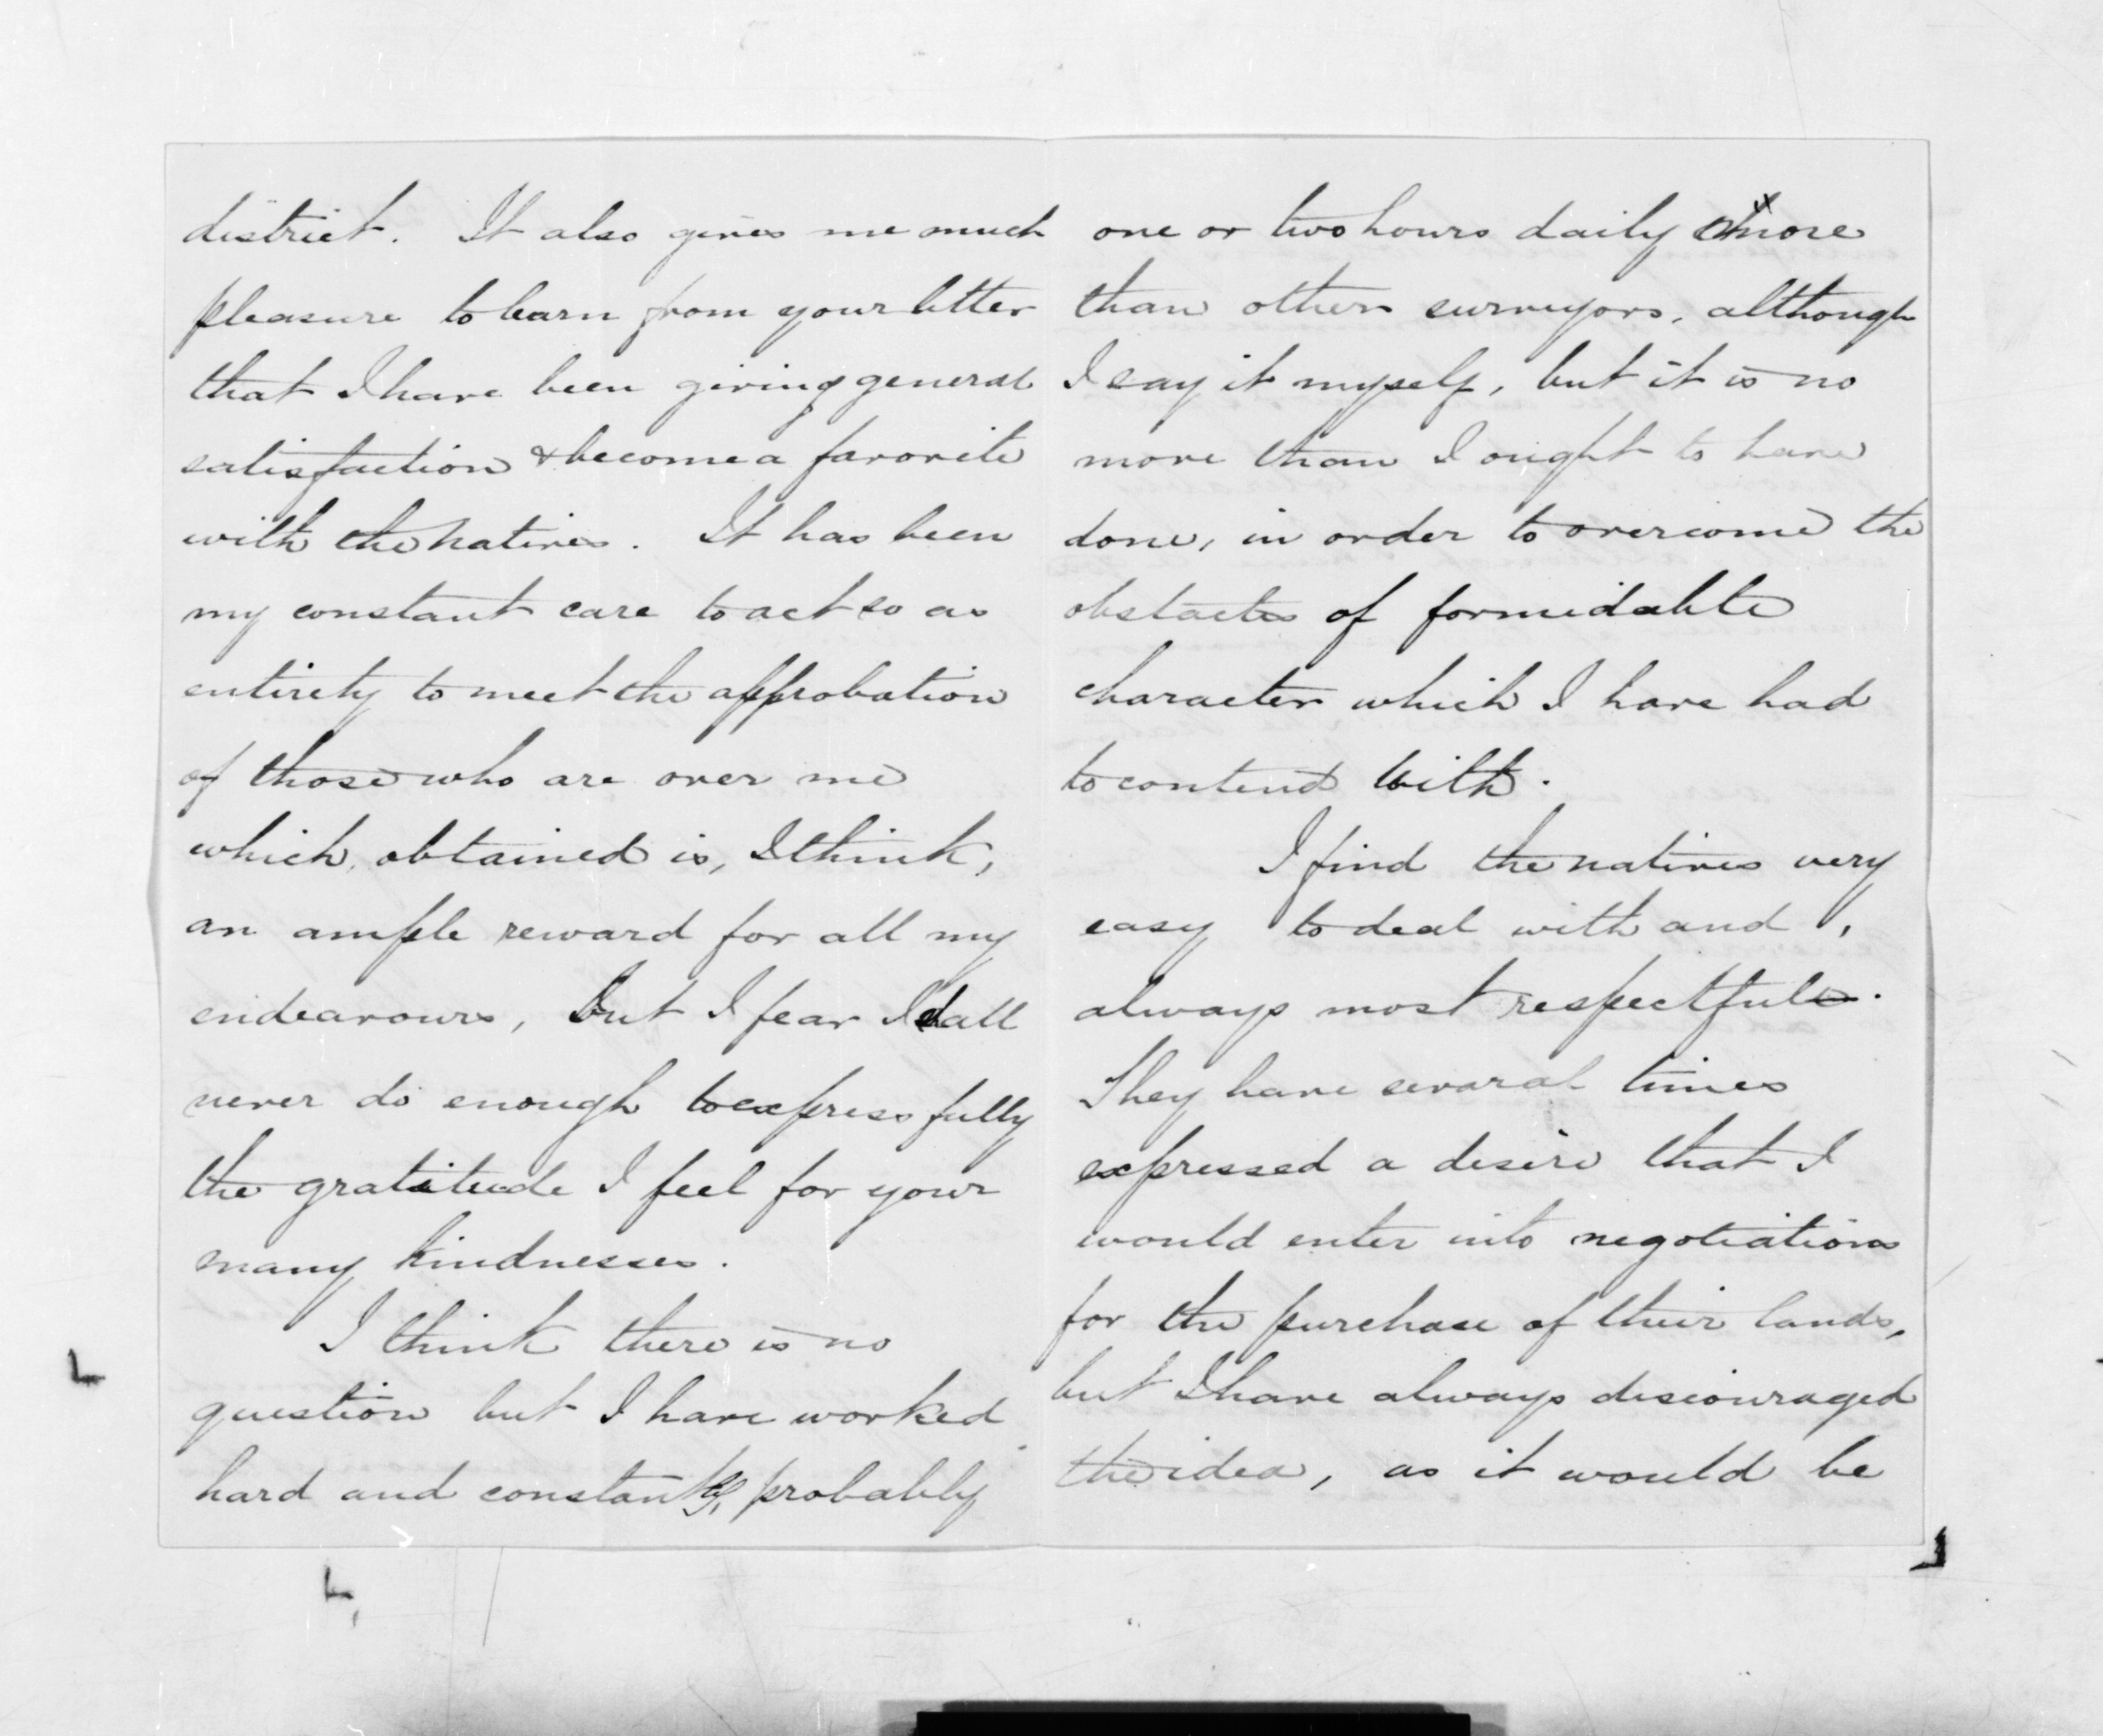 district. It also gives me much
pleasure to learn from your letter
that I have been giving general
satisfaction & become a favorite
with the natives. It has been
my constant care to act so as
entirely to meet the approbation
of those who are over me
which, obtained is, I think,
an ample reward for all my
endeavours, but I fear I shall
never do enough to express fully
the gratitude I feel for your
many kindnesses.
I think there is no
question but I have worked
hard and constantly, probably
one or two hours daily more
than other surveyors, although
I say it myself, but it is no
more than I ought to have
done, in order to overcome the
obstacles of formidable
character which I have had
to contend with.
I find the natives very
easy to deal with and,
always most respectful.
They have severals times
expressed a desire that I
would enter into negotiations
for the purchase of their lands,
but I have always discouraged
the idea, as it would be